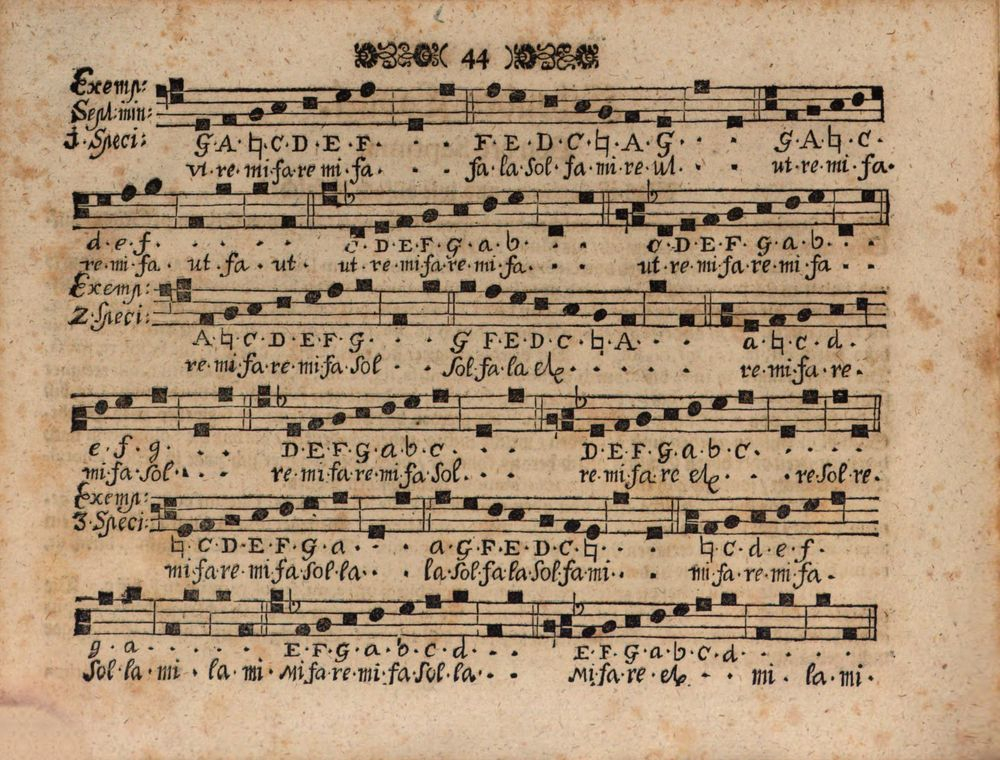 ( 44 )
Exemp:
Sept: min:
1. Speci: G·A·♮·C·D·E·F· · · · F·E·D·C·♮·A·G· · · · G·A·♮·C·
vt·re·mi·fa·re mi·fa· · · · fa·la·sol·fa·mi·re·ut· · · · ut·re·mi·fa·
d·e·f· · · · · C·D·E·F·G·a·b· · · C·D·E·F·G·a·b· · ·
re·mi·fa· ut·fa·ut· ut·re·mi·fa·re·mi·fa· · · ut·re·mi·fa·re·mi·fa · ·
Exemp:
2·Speci: A·♮·C·D·E·F·G· · · · G F·E·D·C·♮·A· · · · a·♮·c·d·
re·mi·fa·re·mi·fa·sol · · · sol·fa·la · · · · · re·mi·fa·re·
e·f·g· · · · D·E·F·G·a·b·c· · · · D·E·F·G·a·b·c· · · · ·
mi·fa·sol· · · re·mi·fa·re·mi·fa·sol· · · re·mi·fa·re · · re·sol·re·
Exemp:
3·Speci: ♮·C·D·E·F·G·a· · · a·G·F·E·D·C·♮· · · ♮·c·d·e·f·
mi·fa·re·mi·fa·sol·la· · · la·sol·fa·la·sol·fa·mi· · · mi·fa·re·mi·fa·
g·a· · · · · E·F·G·a·b·c·d· · · · E·F·G·a·b·c·d· · · · ·
sol·la·mi·la·mi· Mi·fa·re·mi·fa·sol·la· · · Mi·fa·re · · mi·la·mi·